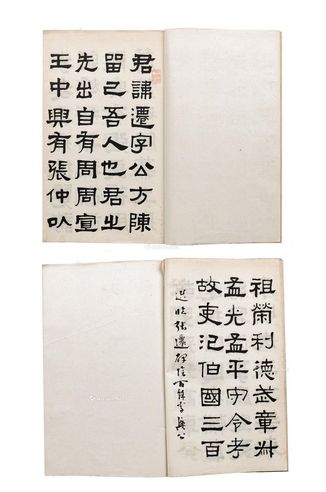 君諱遷字公方陳
留己吾人也君之
先出自有周周宣
王中興有張仲以
祖榮利德武章
孟光孟平守令考
故吏氾伯國三百
臨張遷碑